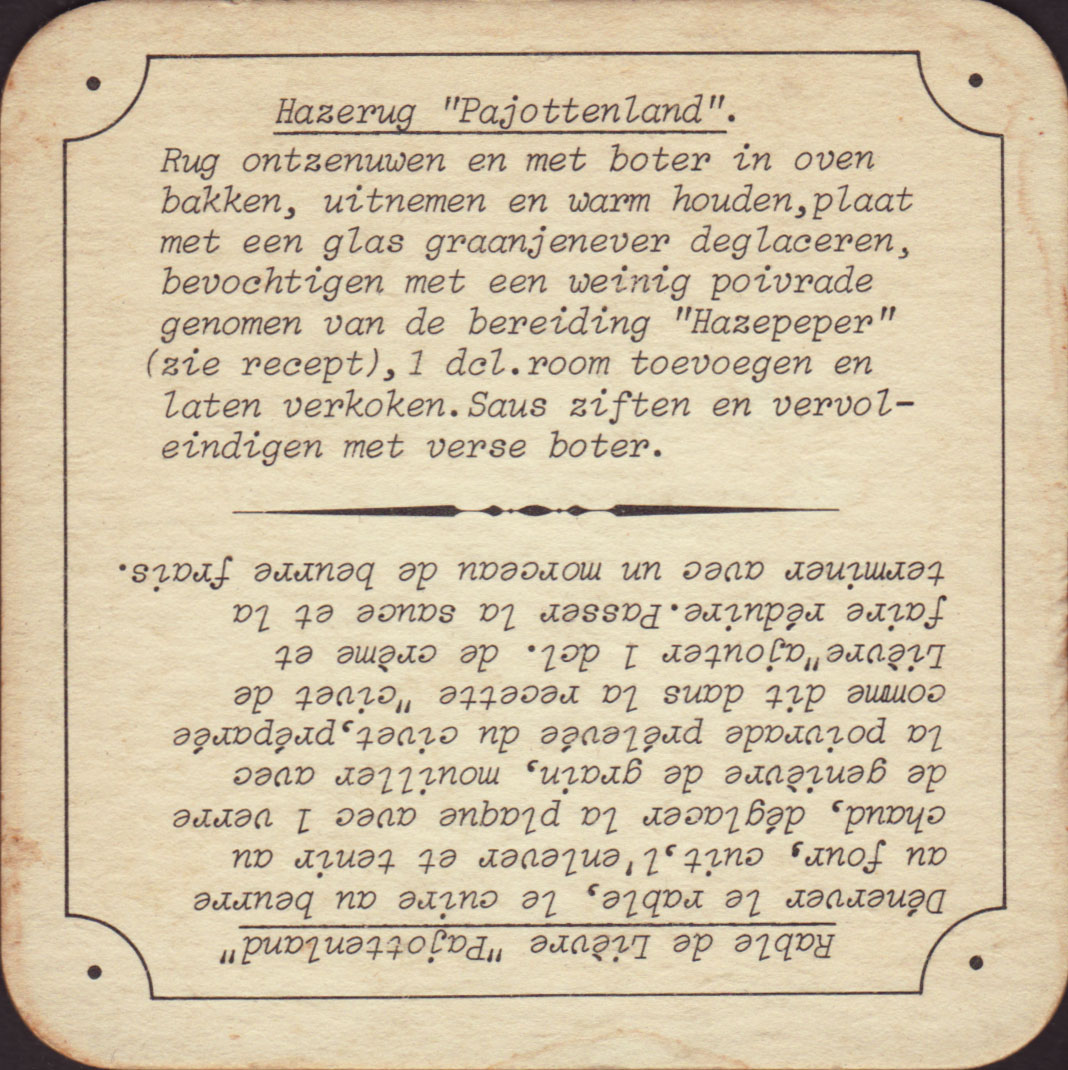 Hazerug "Pajottenland".
Rug ontzenuwen en met boter in oven
bakken, uitnemen en warm houden,plaat
met een glas graanjenever deglaceren,
bevochtigen met een weinig poivrade
genomen van de bereiding "Hazepeper"
(zie recept),1 dcl.room toevoegen en
laten verkoken.Saus ziften en vervol-
eindigen met verse boter.
Rable de Lièvre "Pajottenland"
Dénerver le rable, le cuire au beurre
au four, cuit,l'enlever et tenir au
chaud, déglacer la plaque avec 1 verre
de genièvre de grain, mouiller avec
la poivrade prélevée du civet,préparée
comme dit dans la recette "civet de
Lièvre"ajouter 1 dcl. de crème et
faire réduire.Passer la sauce et la
terminer avec un morceau de beurre frais.